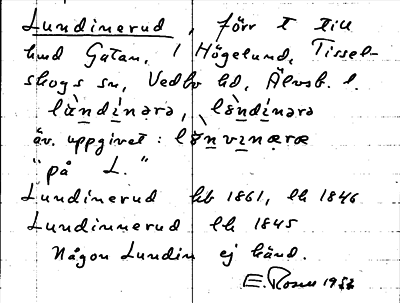 Lundinerud, förr t till
hmd Gatan, 1 Högelund, Tissel-
skogs sn, Vedbo hd, Älvsb. l.
làndinərə, lòndinərə
äv. uppgivet: lònvinæræ
"på L."
Lundinerud kb 1861, lk 1846
Lundinnerud lk 1845
Någon Lundin ej känd.
E. Rosen